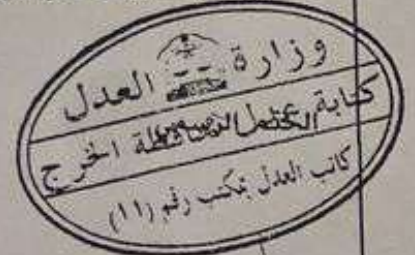 وزارة العدل
كتابة عدل بمحافظة الخرج
كاتب العدل بمكتب رقم (١١)